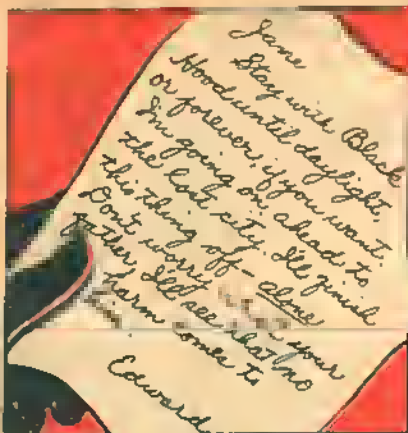 Jane
Stay with Black
Hood until daylight,
or forever, if you want.
I'm going on ahead to
the lost city. I'll finish
this thing off – alone
Don't worry your
father I'll see that no
harm comes to
him
Edward